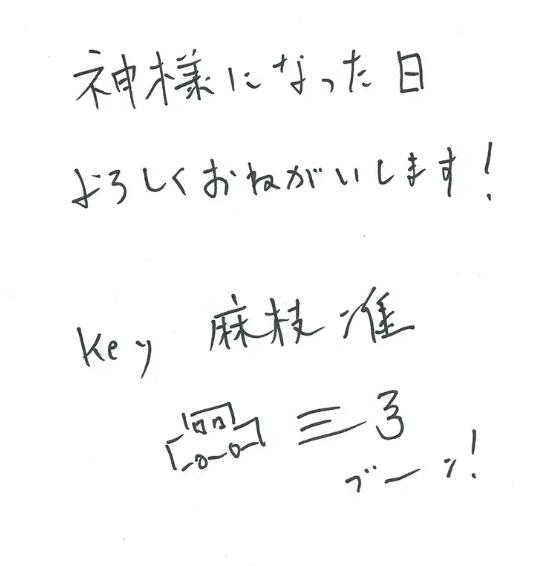 神様になった日
よろしくおねがいします!
Key 麻枝 准
ブーン!